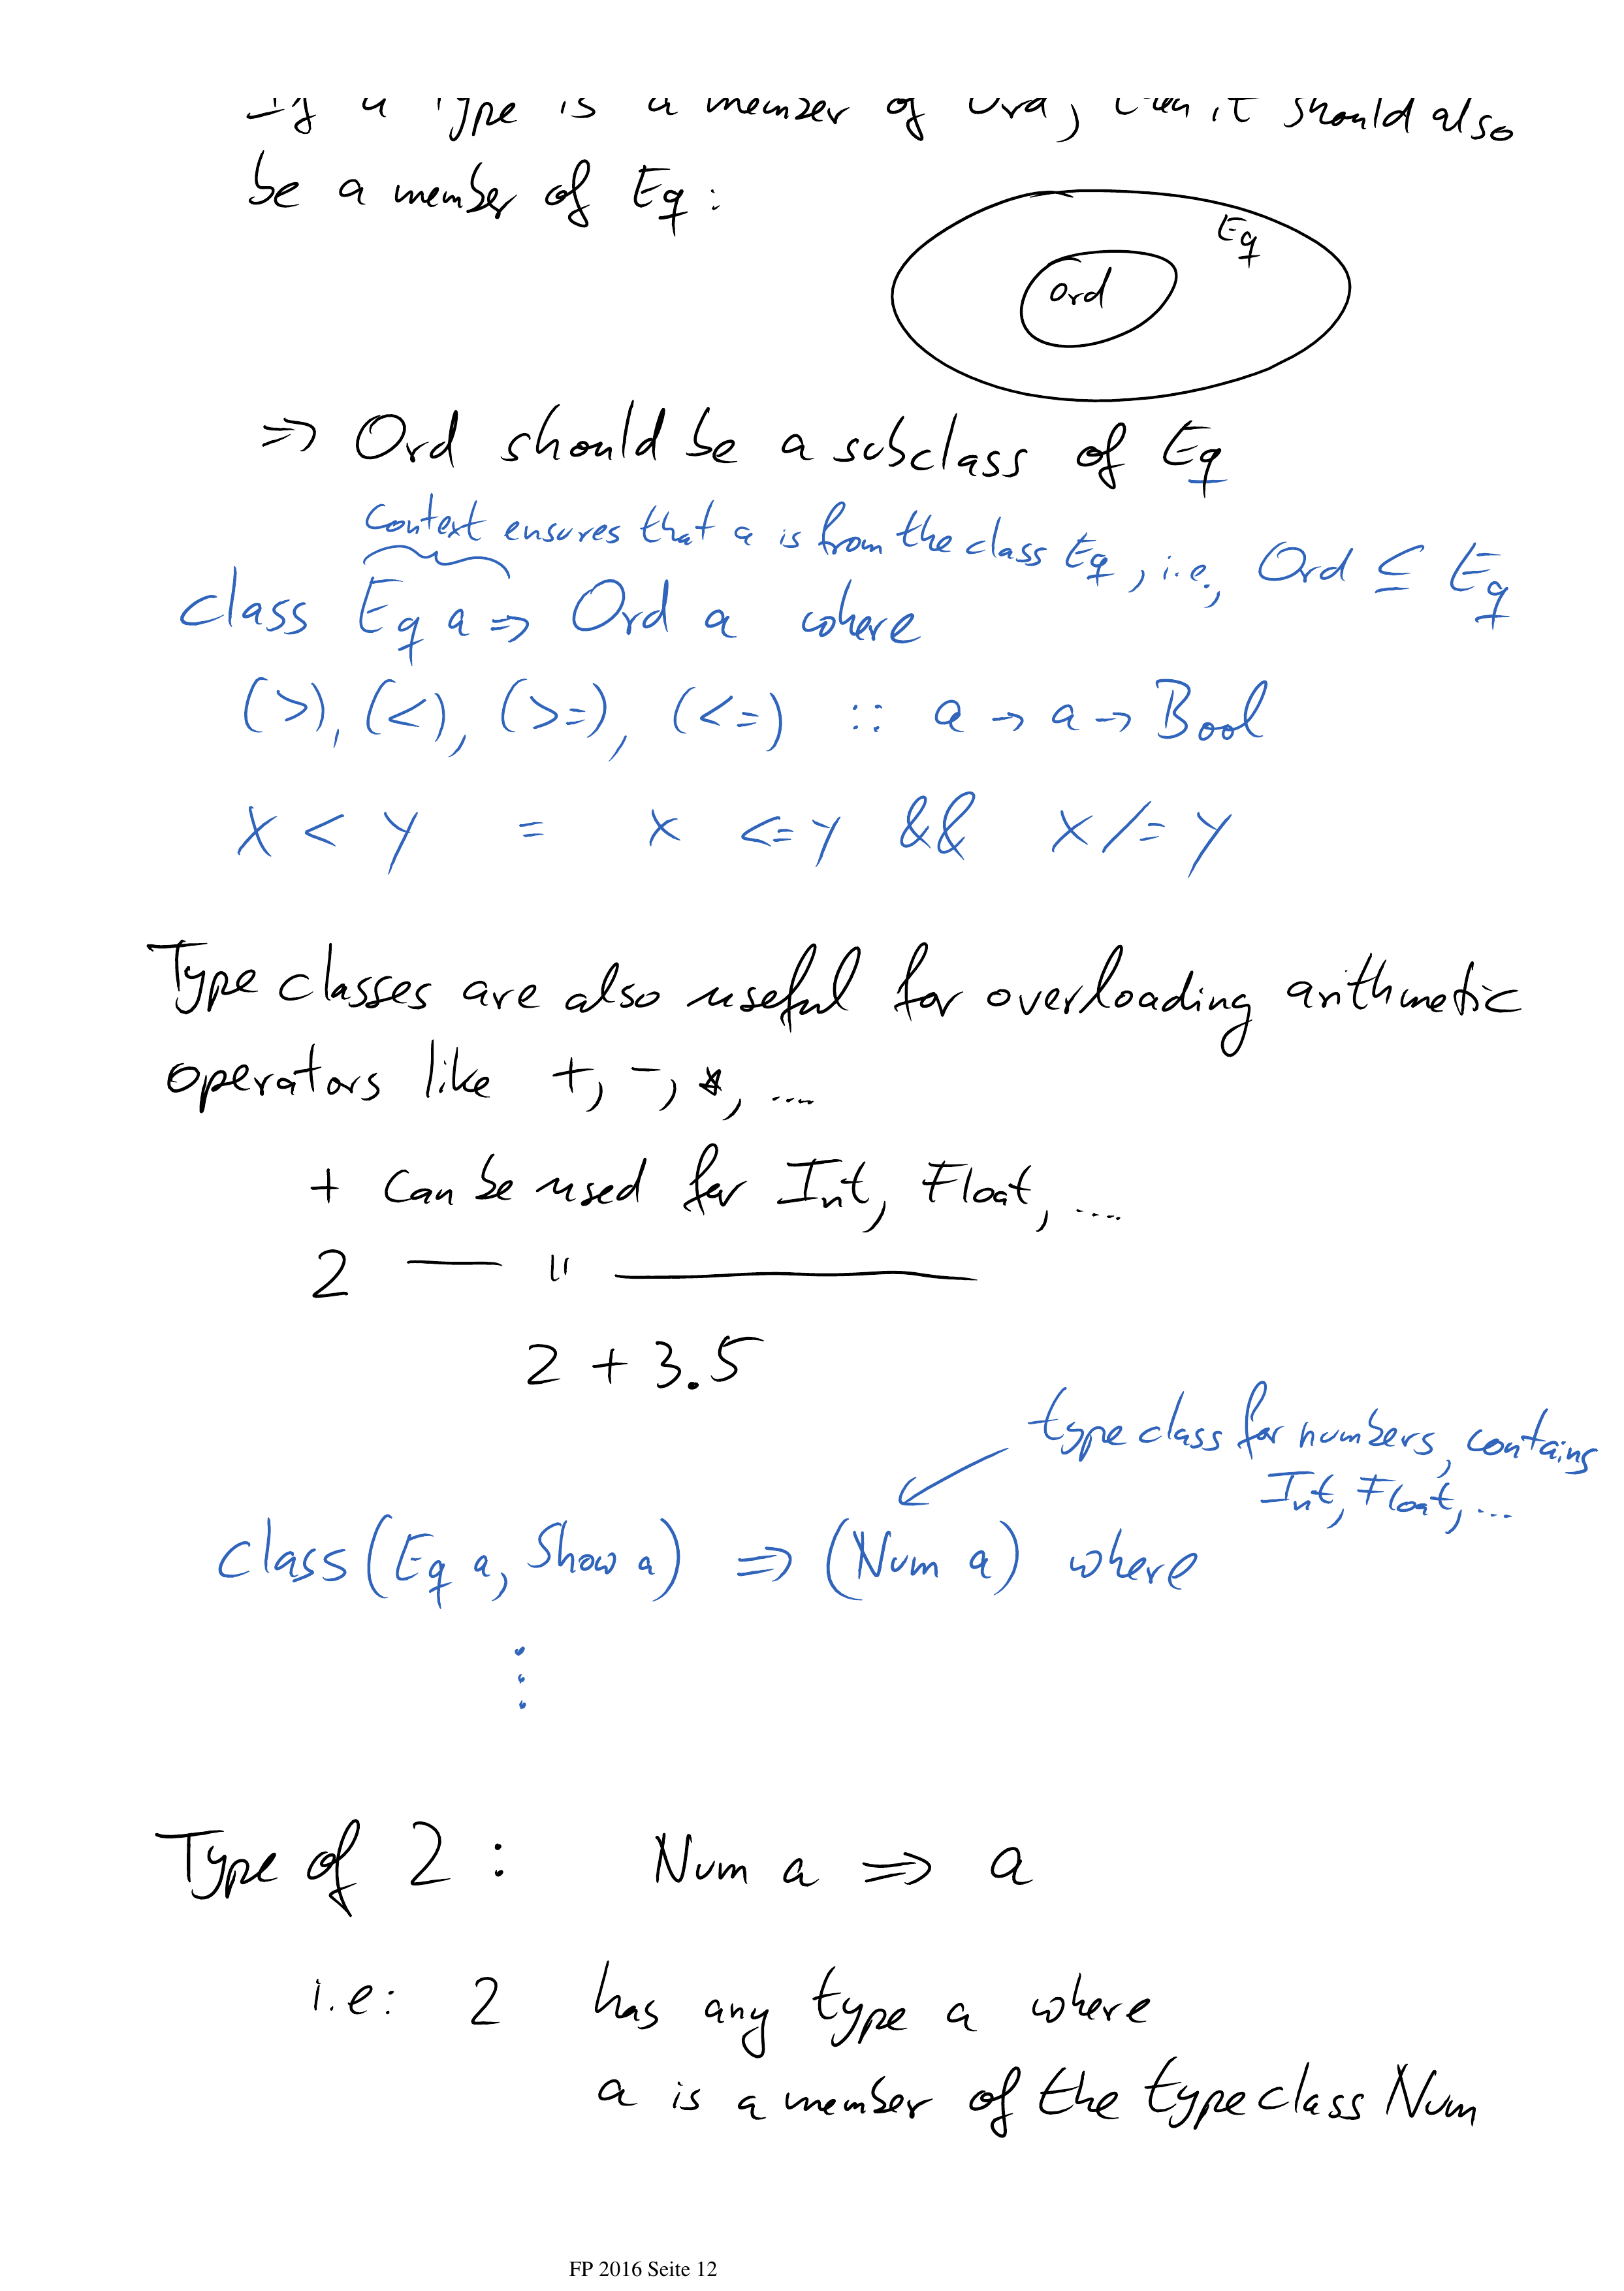 If a Type is a member of Ord, then it should also
be a member of Eq :
Eq
Ord
=> Ord should be a subclass of Eq
Context ensures that a is from the class Eq, i.e., Ord ⊆ Eq
class Eq a => Ord a where
(>), (<), (>=), (<=) :: a -> a -> Bool
x < y = x <= y && x /= y
Type classes are also useful for overloading arithmetic
operators like +, -, *, ....
+ can be used for Int, Float, ....
2 — " —
2 + 3.5
type class for numbers, contains
Int, Float, ...
class (Eq a, Show a) => (Num a) where
⋮
Type of 2 : Num a => a
i.e: 2 has any type a where
a is a member of the type class Num
FP 2016 Seite 12